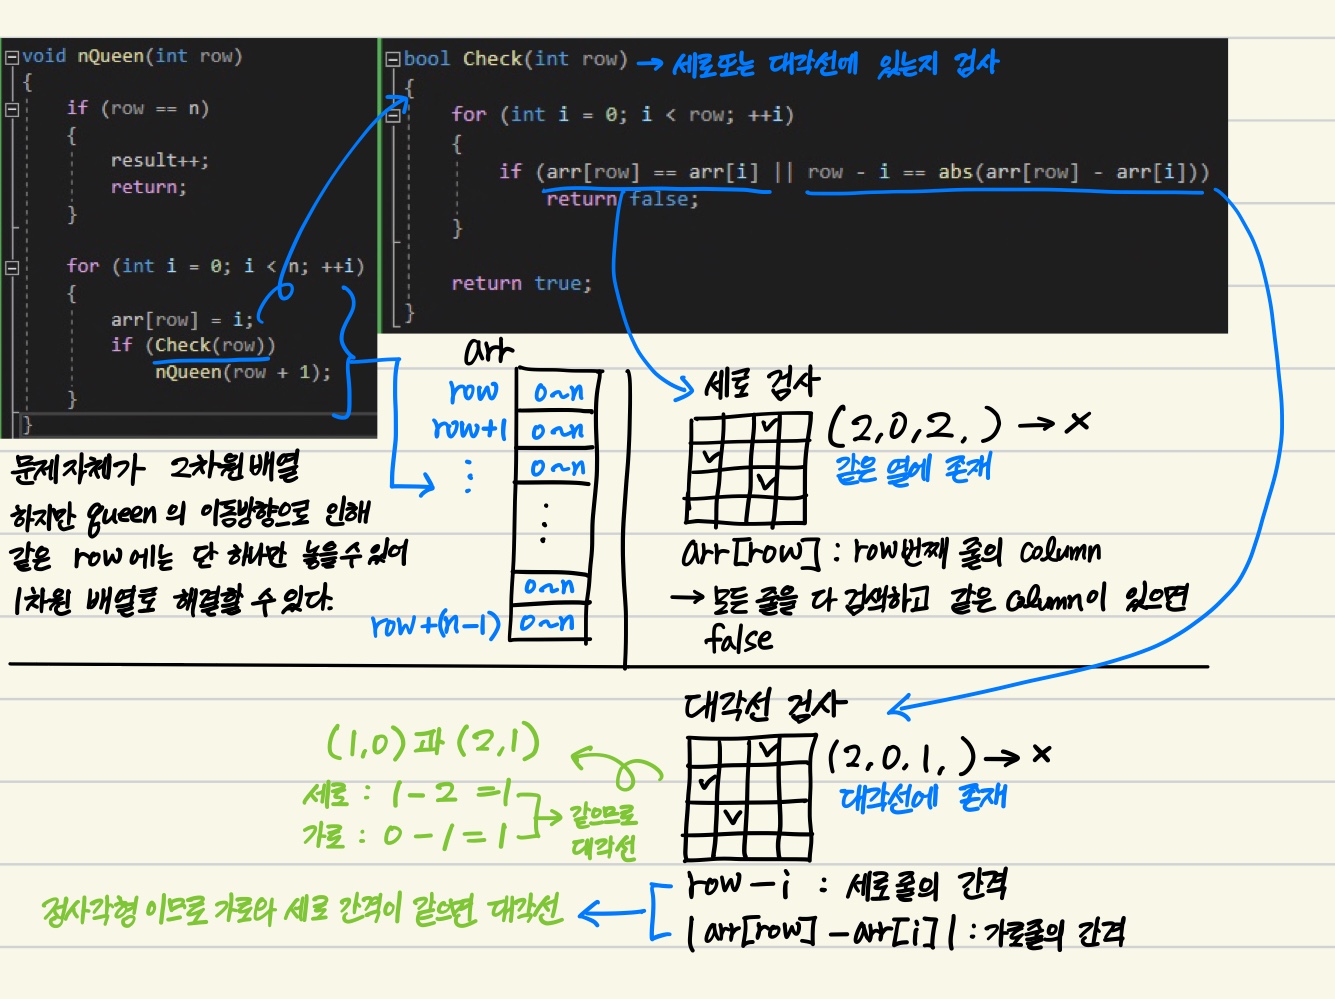 void nQueen(int row)
{
if (row == n)
{
result++;
return;
}
for (int i = 0; i < n; ++i)
{
arr[row] = i;
if (Check(row))
nQueen(row + 1);
}
}
bool Check(int row) → 세로또는 대각선에 있는지 검사
{
for (int i = 0; i < row; ++i)
{
if (arr[row] == arr[i] || row - i == abs(arr[row] - arr[i]))
return false;
}
return true;
}
문제자체가 2차원배열
하지만 queen의 이동방향으로 인해
같은 row에는 단 하나만 놓을수 있어
1차원 배열로 해결할 수 있다.
arr
row 0~n
row+1 0~n
⋮ 0~n
⋮
0~n
row+(n-1) 0~n
세로 검사
(2,0,2, ) → ×
같은 열에 존재
arr[row] : row번째 줄의 column
→ 모든 줄을 다 검색하고 같은 column이 있으면
false
대각선 검사
(2,0,1, ) → ×
대각선에 존재
(1,0)과 (2,1)
세로 : 1-2 =1
가로 : 0-1=1
같으므로
대각선
row-i : 세로줄의 간격
|arr[row] -arr[i]| : 가로줄의 간격
정사각형 이므로 가로와 세로 간격이 같으면 대각선